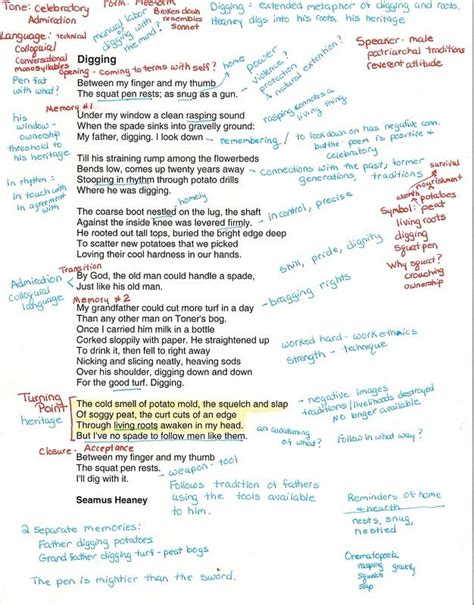 Tone: Celebratory
Admiration
Form: Freeform
Broken down
resembles
sonnet
Digging = extended metaphor of digging and roots.
Heaney digs into his roots, his heritage
Language: technical
Colloquial
Conversational
monosyllables
manual labor
or
digging with
the mind?
Speaker - male
patriarchal traditions
reverent attitude
Digging
opening - coming to terms with self?
home
power
violence?
protection
a natural extension?
Pen fat
with what?
Between my finger and my thumb
The squat pen rests; as snug as a gun.
Memory #1
rasping connotes a
living thing
his
window -
ownership
threshold to
his heritage
Under my window a clean rasping sound
When the spade sinks into gravelly ground:
My father, digging. I look down
remembering
to look down on has negative conn.
but the poem is positive +
celebratory
Till his straining rump among the flowerbeds
Bends low, comes up twenty years away
Stooping in rhythm through potato drills
Where he was digging.
Connections with the past, former
generations, traditions
survival
nourishment
In rhythm =
in touch with
in agreement
with
homely
The coarse boot nestled on the lug, the shaft
Against the inside knee was levered firmly.
He rooted out tall tops, buried the bright edge deep
To scatter new potatoes that we picked
Loving their cool hardness in our hands.
in control, precise
skill, pride, dignity
warmth
potatoes
Symbol: peat
living roots
digging
squat pen
Why squat?
crouching
ownership
Transition
Admiration
Colloquial
language
By God, the old man could handle a spade,
Just like his old man.
bragging rights
Memory #2
My grandfather could cut more turf in a day
Than any other man on Toner's bog.
Once I carried him milk in a bottle
Corked sloppily with paper. He straightened up
To drink it, then fell to right away
Nicking and slicing neatly, heaving sods
Over his shoulder, digging down and down
For the good turf. Digging.
worked hard - work ethnics
strength - technique
Turning
Point
heritage
The cold smell of potato mold, the squelch and slap
Of soggy peat, the curt cuts of an edge
Through living roots awaken in my head.
But I've no spade to follow men like them.
negative images
traditions/livelihoods destroyed
No longer available
an awakening
of what?
Follow in what way?
Closure - Acceptance
Between my finger and my thumb
The squat pen rests.
I'll dig with it.
weapon - tool
Follows tradition of fathers
using the tools available
to him.
Seamus Heaney
Reminders of home
+ hearth
nests, snug,
nestled
2 separate memories:
Father digging potatoes
Grandfather digging turf - peat bogs
The pen is mightier than the sword.
Onematopoeia
rasping gravelly
squelch
slap